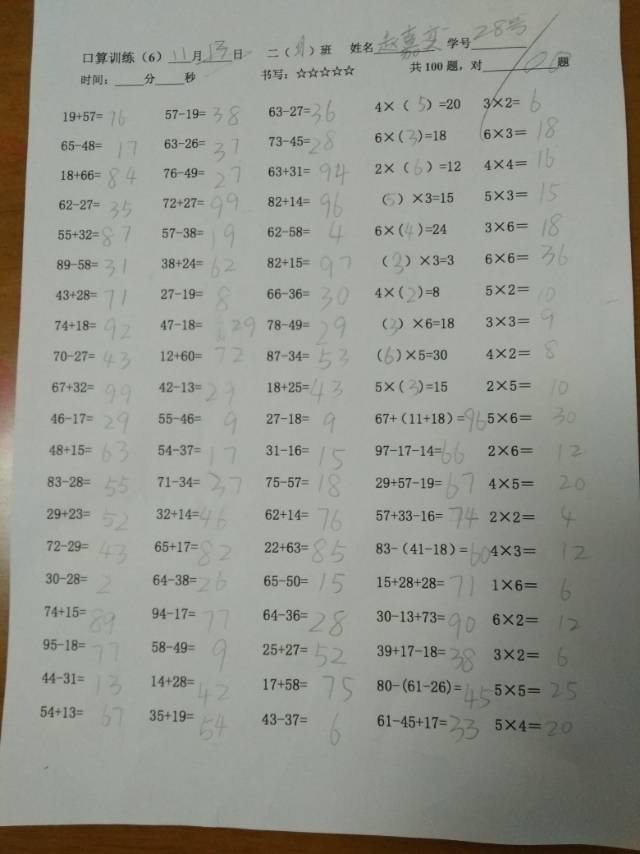 口算训练（6） 11月13日 二（ ）班 姓名 赵嘉 学号 28号
时间：____分____秒 书写：☆☆☆☆☆ 共100题，对____题
19+57=76 57-19=38 63-27=36 4×（5）=20 3×2=6
65-48=17 63-26=37 73-45=28 6×(3)=18 6×3=18
18+66=84 76-49=27 63+31=94 2×（6）=12 4×4=16
62-27=35 72+27=99 82+14=96 （5）×3=15 5×3=15
55+32=87 57-38=19 62-58=4 6×(4)=24 3×6=18
89-58=31 38+24=62 82+15=97 （3）×3=3 6×6=36
43+28=71 27-19=8 66-36=30 4×(2)=8 5×2=10
74+18=92 47-18=29 78-49=29 （3）×6=18 3×3=9
70-27=43 12+60=72 87-34=53 (6)×5=30 4×2=8
67+32=99 42-13=29 18+25=43 5×(3)=15 2×5=10
46-17=29 55-46=9 27-18=9 67+(11+18)=96 5×6=30
48+15=63 54-37=17 31-16=15 97-17-14=66 2×6=12
83-28=55 71-34=37 75-57=18 29+57-19=67 4×5=20
29+23=52 32+14=46 62+14=76 57+33-16=74 2×2=4
72-29=43 65+17=82 22+63=85 83-(41-18)=60 4×3=12
30-28=2 64-38=26 65-50=15 15+28+28=71 1×6=6
74+15=89 94-17=77 64-36=28 30-13+73=90 6×2=12
95-18=77 58-49=9 25+27=52 39+17-18=38 3×2=6
44-31=13 14+28=42 17+58=75 80-(61-26)=45 5×5=25
54+13=67 35+19=54 43-37=6 61-45+17=33 5×4=20